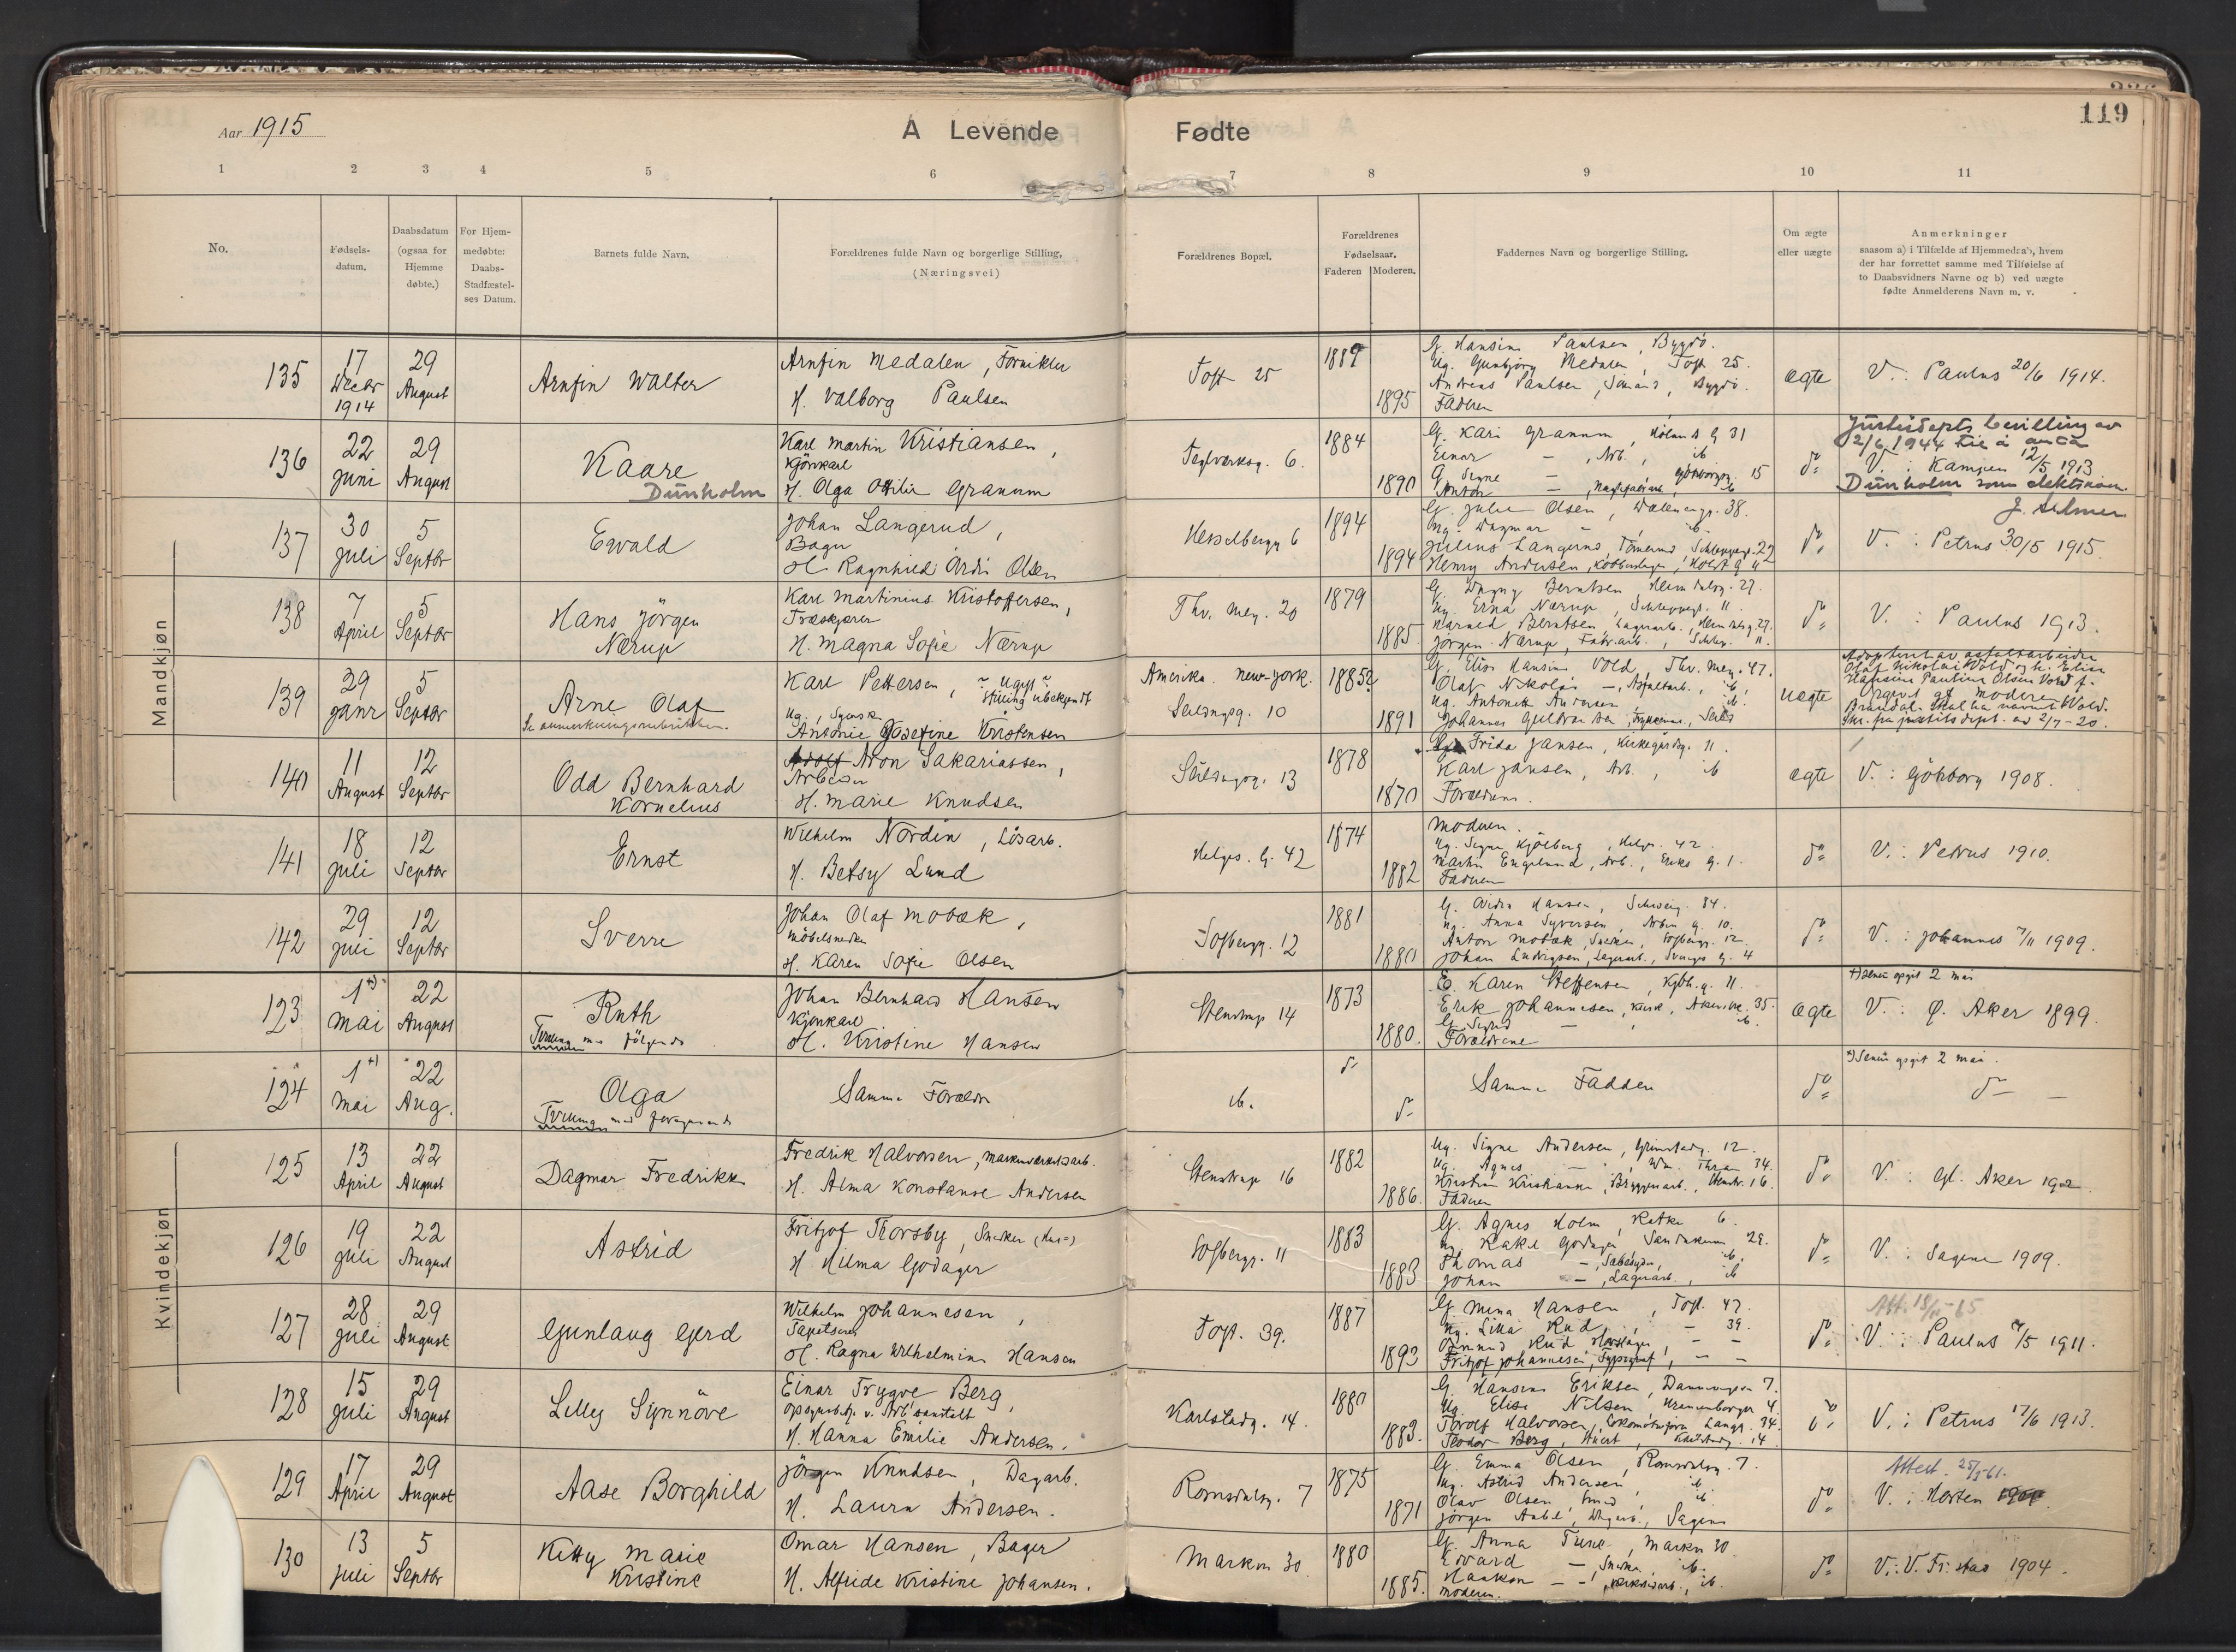 119
Aar 1915
A Levende Fødte
1 2 3 4 5 6 7 8 9 10 11
No.
Fødsels-
datum.
Daabsdatum
(ogsaa for
Hjemme
døbte.)
For Hjem-
medøbte:
Daabs-
Stadfæstel-
ses Datum.
Barnets fulde Navn.
Forældrenes fulde Navn og borgerlige Stilling,
(Næringsvei)
Forældrenes Bopæl.
Forældrenes
Fødselsaar.
Faderen Moderen.
Faddernes Navn og borgerlige Stilling.
Om ægte
eller uægte
Anmerkninger
saasom a) i Tilfælde af Hjemmedaab, hvem
der har forrettet samme med Tilføielse af
to Daabsvidners Navne og b) ved uægte
fødte Anmelderens Navn m. v.
Mandkjøn
135
17
Decbr
1914
29
August
Arnfin Walter
Arnfin Medalen, Fornikler
H. Valborg Paulsen
Toft 25
1889
1895
G. Hansine Paulsen, Bygdö.
Ug. Gunbjörg Medalen, Toft. 25.
Andreas Paulsen, Bygdö.
Faderen
ægte
V. : Paulus 20/6 1914.
136
22
juni
29
August
Kaare
Dünholm
Karl Martin Kristiansen,
Kjörekarl
H. Olga Otilie Granum
Teglverksg. 6.
1884
1890
G. Kari Granum, Holms G 31
Einar — , Arb., ib
G. Signe — Göteborgg. 15
Anton —
do
Justisdepts bevilling av
2/6 1944 til å anta
V. : Kampen 12/5 1913.
Dünholm som slektsnavn.
137
30
juli
5
Septbr
Ewald
Johan Langerud,
Bager
H. Ragnhild Ovidi Olsen
Hesselbergg 6
1894
1894
G. Julie Olsen, Waleren gt. 38.
Ug. Dagmar — , ib
Julius Langerud, Tömermd, Schleppegt. 22
Henry Andersen,
do
V. : Petrus 30/5 1915.
138
7
April
5
Septbr
Hans Jörgen
Nærup
Karl Martinius Kristoffersen,
Træskjærer
H. Magna Sofie Nærup
Thv. Mey. 20
1879
1885
G. Dagny Berntsen, Heimdalsg. 27.
Ug. Erna Nærup, Schleppegt. 11.
Harald Berntsen, Lagerarb., Heimdalsg 27.
Jörgen Nærup, Fabr.arb., Schlep. 11.
do
V. : Paulus 1913.
139
29
janr
5
Septbr
Arne Olaf
Se anmerkningsrubrikken.
Karl Pettersen, Ugift
stilling ubekjendt
Ug., Syerske
Antonie Josefine Kristensen
Amerika. New-York.
Seildugsg. 10
1885
1891
G. Elise Hansine Vold, Thv. Mey. 47.
Olaf Nikolai — , Asfaltarb., ib,
Ug. Antonette Andersen, ib.
Johannes Guldbrandsen,
uægte
Adoptert av asfaltarbeider
Olaf Nikolai Vold og h. Elise
Hansine Pauline Olsen Vold f.
Opgivet af moderen
Brandal. Skal ha navnet Vold.
Skr. fra justitsdept. av 2/7-20.
140
11
August
12
Septbr
Odd Bernhard
Kornelius
Aron Sakariassen,
Arbeider
H. Marie Knudsen
Seildugsg. 13
1878
1870
Frida Jansen, Kirkegårdsg. 11.
Karl Jansen, Arb., ib
Forældrene.
ægte
V. : Göteborg 1908.
141
18
juli
12
Septbr
Ernst
Wilhelm Nordin, Lösarb.
H. Betsy Lund
Helges. G. 42
1874
1882
Moderen.
Ug. Signe Kjölberg, Helges. 42.
Martin Engelund, Arb., Eriks G. 1.
Faderen
do
V. : Petrus 1910.
142
29
juli
12
Septbr
Sverre
Johan Olaf Mobæk,
Möbelsnedker
H. Karen Sofie Olsen
Sofbergg. 12
1881
1880
G. Ovidia Hansen, Schweig. 84.
Ug. Anna Syversen, Arbin G. 10.
Anton Mobæk, Snedker, Sofbergg. 12
Johan Ludvigsen, Lagerarb., Sverges G. 4
do
V. : Johannes 7/11 1909.
Kvindekjøn
123
1 +)
Mai
22
August
Ruth
Tvilling med fölgende
Johan Bernhard Hansen
Kjörekarl
H. Kristine Hansen
Stenstrup 14
1873
1880.
E. Karen Steffensen, Kjbh. g. 11.
Erik Johannesen, Kusk, Akersve. 35.
G. Sigrid — , ib.
Forældrene
ægte
+) Senere opgit 2 mai
V. : Ø. Aker 1899.
124
1 +)
Mai
22
Aug.
Olga
Tvilling med foregaaende
Samme Forældre
ib.
do
do
Samme Faddere
do
+) Senere opgit 2 mai.
do
125
13
April
22
August
Dagmar Fredrikke
Fredrik Halvorsen,
H. Alma Konstanse Andersen
Stenstrup 16
1882
1886.
Ug. Signe Andersen, Grimstadg. 12.
Ug. Agnes — , Wm. Thran 34.
Kristian Kristiansen, Bryggeriarb., Stenstr. 16.
Faderen
do
V. : Gl. Aker 1902
126
19
juli
22
August
Astrid
Fritjof Thorsby, Snedker
H. Hilma Godager
Sofbergg. 11
1883
1883
G. Agnes Holm, Ratke 6.
Ug. Rakel Godager, Sandakerv 29.
Thomas — , ib.
Johan — , Lagerarb., ib
do
V. : Sagene 1909.
127
28
juli
29
August
Gunlaug Gerd
Wilhelm Johannesen,
Tapetserer
H. Ragna Wilhelmine Hansen
Toft. 39.
1887
1893
G. Mina Hansen, Toft. 47.
Ug. Lilla Rud, — 39.
Rud
Fritjof Johannesen, Typograf, — —
do
V. : Paulus 7/5 1911.
128
15
juli
29
August
Lilly Synnöve
Einar Trygve Berg,
H. Hanna Emilie Andersen.
Karlstadg. 14.
1880
1883.
G. Hansine Eriksen, 7.
Ug. Elise Nilsen, 4.
Torolf Halvorsen, Langg. 34.
Teodor Berg, Karlstadg. 14
do
V. : Petrus 17/6 1913.
129
17
April
29
August
Aase Borghild
Jörgen Knudsen, Dagarb.
H. Laura Andersen.
Romsdalsg. 7
1875
1871
G. Emma Olsen, Romsdalsg. 7.
Ug. Astrid Andersen, ib
Olav Olsen, Smed, ib
Jörgen Aabel, Sagene
do
Attest. 25/5-61.
V. : Horten
130
13
juli
5
Septbr
Kitty Marie
Kristine
Omar Hansen, Bager
H. Alfride Kristine Johansen.
Markvn 30
1880
1885.
G. Anna Tune, Markvn 30
Edvard — , Snedker, ib.
Haakon — , ib.
Moderen.
do
V. : V. Fr.stad 1904.